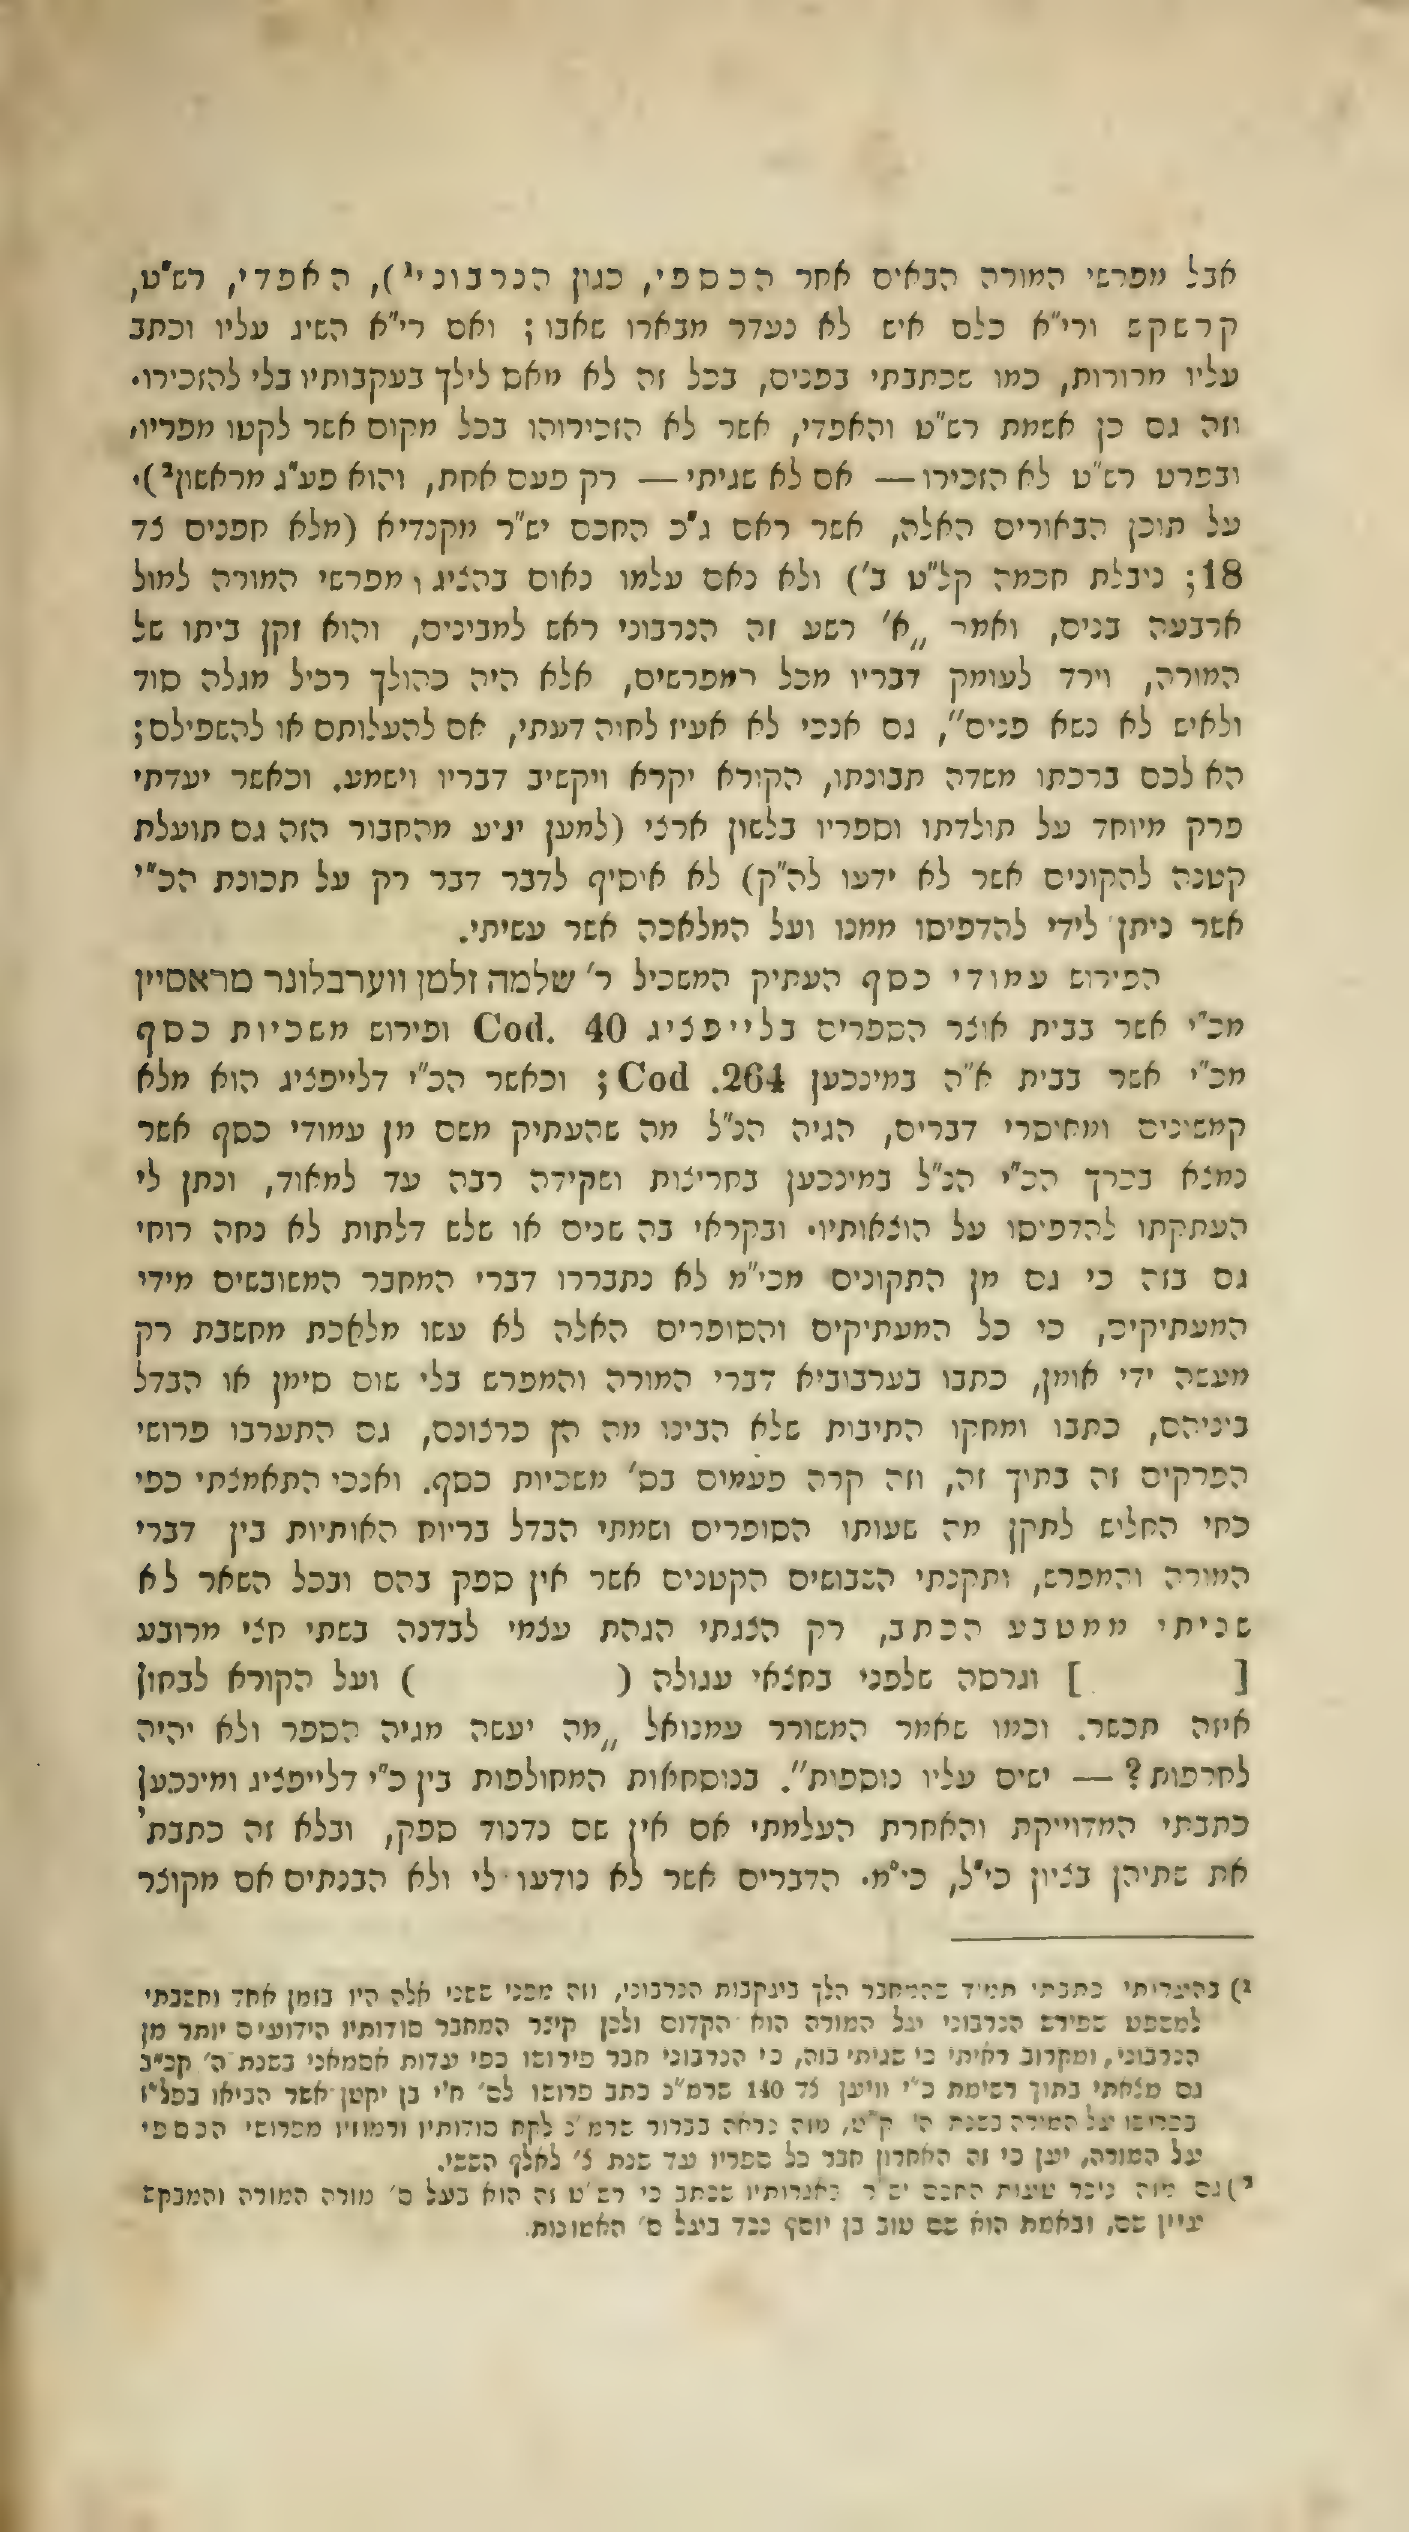 אבל מפרשי המורה הבאים אחר הכספי, כגון הנרבוני¹), האפדי, רש"ט,
קרשקש ורי"א כלם איש לא נעדר מבארו שאבו; ואם רי"א השיג עליו וכתב
עליו מרורות, כמו שכתבתי בפנים, בכל זה לא מאס לילך בעקבותיו בלי להזכירו.
וזה גם כן אשמת רש"ט והאפדי, אשר לא הזכירוהו בכל מקום אשר לקטו מפריו,
ובפרט רש"ט לא הזכירו — אם לא שגיתי — רק פעם אחת, והוא פע"ג מראשון²).
על תוכן הבאורים האלה, אשר ראם ג"כ החכם יש"ר מקנדיא (מלא חפנים צד
18; נובלת חכמה קל"ט ב') ולא נאם עלמו נאום בהציגו מפרשי המורה למול
ארבעה בנים, ואמר „א' רשע זה הנרבוני ראש למבינים, והוא זקן ביתו של
המורה, וירד לעומק דבריו מכל המפרשים, אלא היה כהולך רכיל מגלה סוד
ולאיש לא נשא פנים", גם אנכי לא אעיז לחוה דעתי, אם להעלותם או להשפילם;
הא לכם ברכתו משדה תבונתו, הקורא יקרא ויקשיב דבריו וישמע. וכאשר יעדתי
פרק מיוחד על תולדתו וספריו בלשון ארצי (למען יגיע מהחבור הזה גם תועלת
קטנה להקונים אשר לא ידעו לה"ק) לא אוסיף לדבר דבר רק על תכונת הכ"י
אשר ניתן לידי להדפיסו ממנו ועל המלאכה אשר עשיתי.
הפירוש עמודי כסף העתיק המשכיל ר' שלמה זלמן ווערבלונר מראסיין
מכ"י אשר בבית אוצר הספרים בלייפציג Cod. 40 ופירוש משכיות כסף
מכ"י אשר בבית א"ה במינכען Cod .264; וכאשר הכ"י דלייפציג הוא מלא
קמשונים ומחוסרי דברים, הגיה הנ"ל מה שהעתיק משם מן עמודי כסף אשר
נמצא בכרך הכ"י הנ"ל במינכען בחריצות ושקידה רבה עד למאוד, ונתן לי
העתקתו להדפיסו על הוצאותיו. ובקראי בה שנים או שלש דלתות לא נחה רוחי
גם בזה כי גם מן התקונים מכי"מ לא נתבררו דברי המחבר המשובשים מידי
המעתיקים, כי כל המעתיקים והסופרים האלה לא עשו מלאכת מחשבת רק
מעשה ידי אומן, כתבו בערבוביא דברי המורה והמפרש בלי שום סימן או הבדל
ביניהם, כתבו ומחקו התיבות שלא הבינו מה הן כרצונם, גם התערבו פרושי
הפרקים זה בתוך זה, וזה קרה פעמים בס' משכיות כסף. ואנכי התאמצתי כפי
כחי החליש לתקן מה שעותו הסופרים ושמתי הבדל בריות האותיות בין דברי
המורה והמפרש, ותקנתי השבושים הקטנים אשר אין ספק בהם ובכל השאר לא
שניתי ממטבע הכתב, רק הצגתי הגהת עצמי לבדנה בשתי חצי מרובע
[ ] וגרסה שלפני בחצאי עגולה ( ) ועל הקורא לבחון
איזה תכשר. וכמו שאמר המשורר עמנואל „מה יעשה מגיה הספר ולא יהיה
לחרפות? — ישים עליו נוספות". בנוסחאות המחולפות בין כ"י דלייפציג ומינכען
כתבתי המדוייקת והאחרת העלמתי אם אין שם נדנוד ספק, ובלא זה כתבתי
את שתיהן בציון כי"ל, כי"מ. הדברים אשר לא נודעו לי ולא הבנתים אם מקוצר
¹) בהערותי כתבתי תמיד שהמחבר הלך בעקבות הנרבוני, וזה מפני ששני אלה היו בזמן אחד וחשבתי
למשפט שפירש הנרבוני על המורה הוא הקדום ולכן קיצר המחבר סודותיו הידועים יותר מן
הנרבוני, ומקרוב ראיתי כי שגיתי בזה, כי הנרבוני חבר פירושו כפי עדות אסמאני בשנת ה' קכ"ב
גם מצאתי בתוך רשימת כ"י וויען צד 140 שרמ"נ כתב פרושו לס' חי בן יקטן אשר הביאו בפל"ז
בפרושו על המורה בשנת ה' ק"ט, מזה נראה בברור שרמ"נ לקח סודותיו ורמוזיו מפרושי הכספי
על המורה, יען כי זה האחרון חבר כל ספריו עד שנת צ' לאלף הששי.
²) גם מזה ניכר טעות החכם יש"ר באגרותיו שכתב כי רש"ט זה הוא בעל ס' מורה המורה והמבקש
יעיין שם, ובאמת הוא שם טוב בן יוסף נכד בעל ס' האמונות.